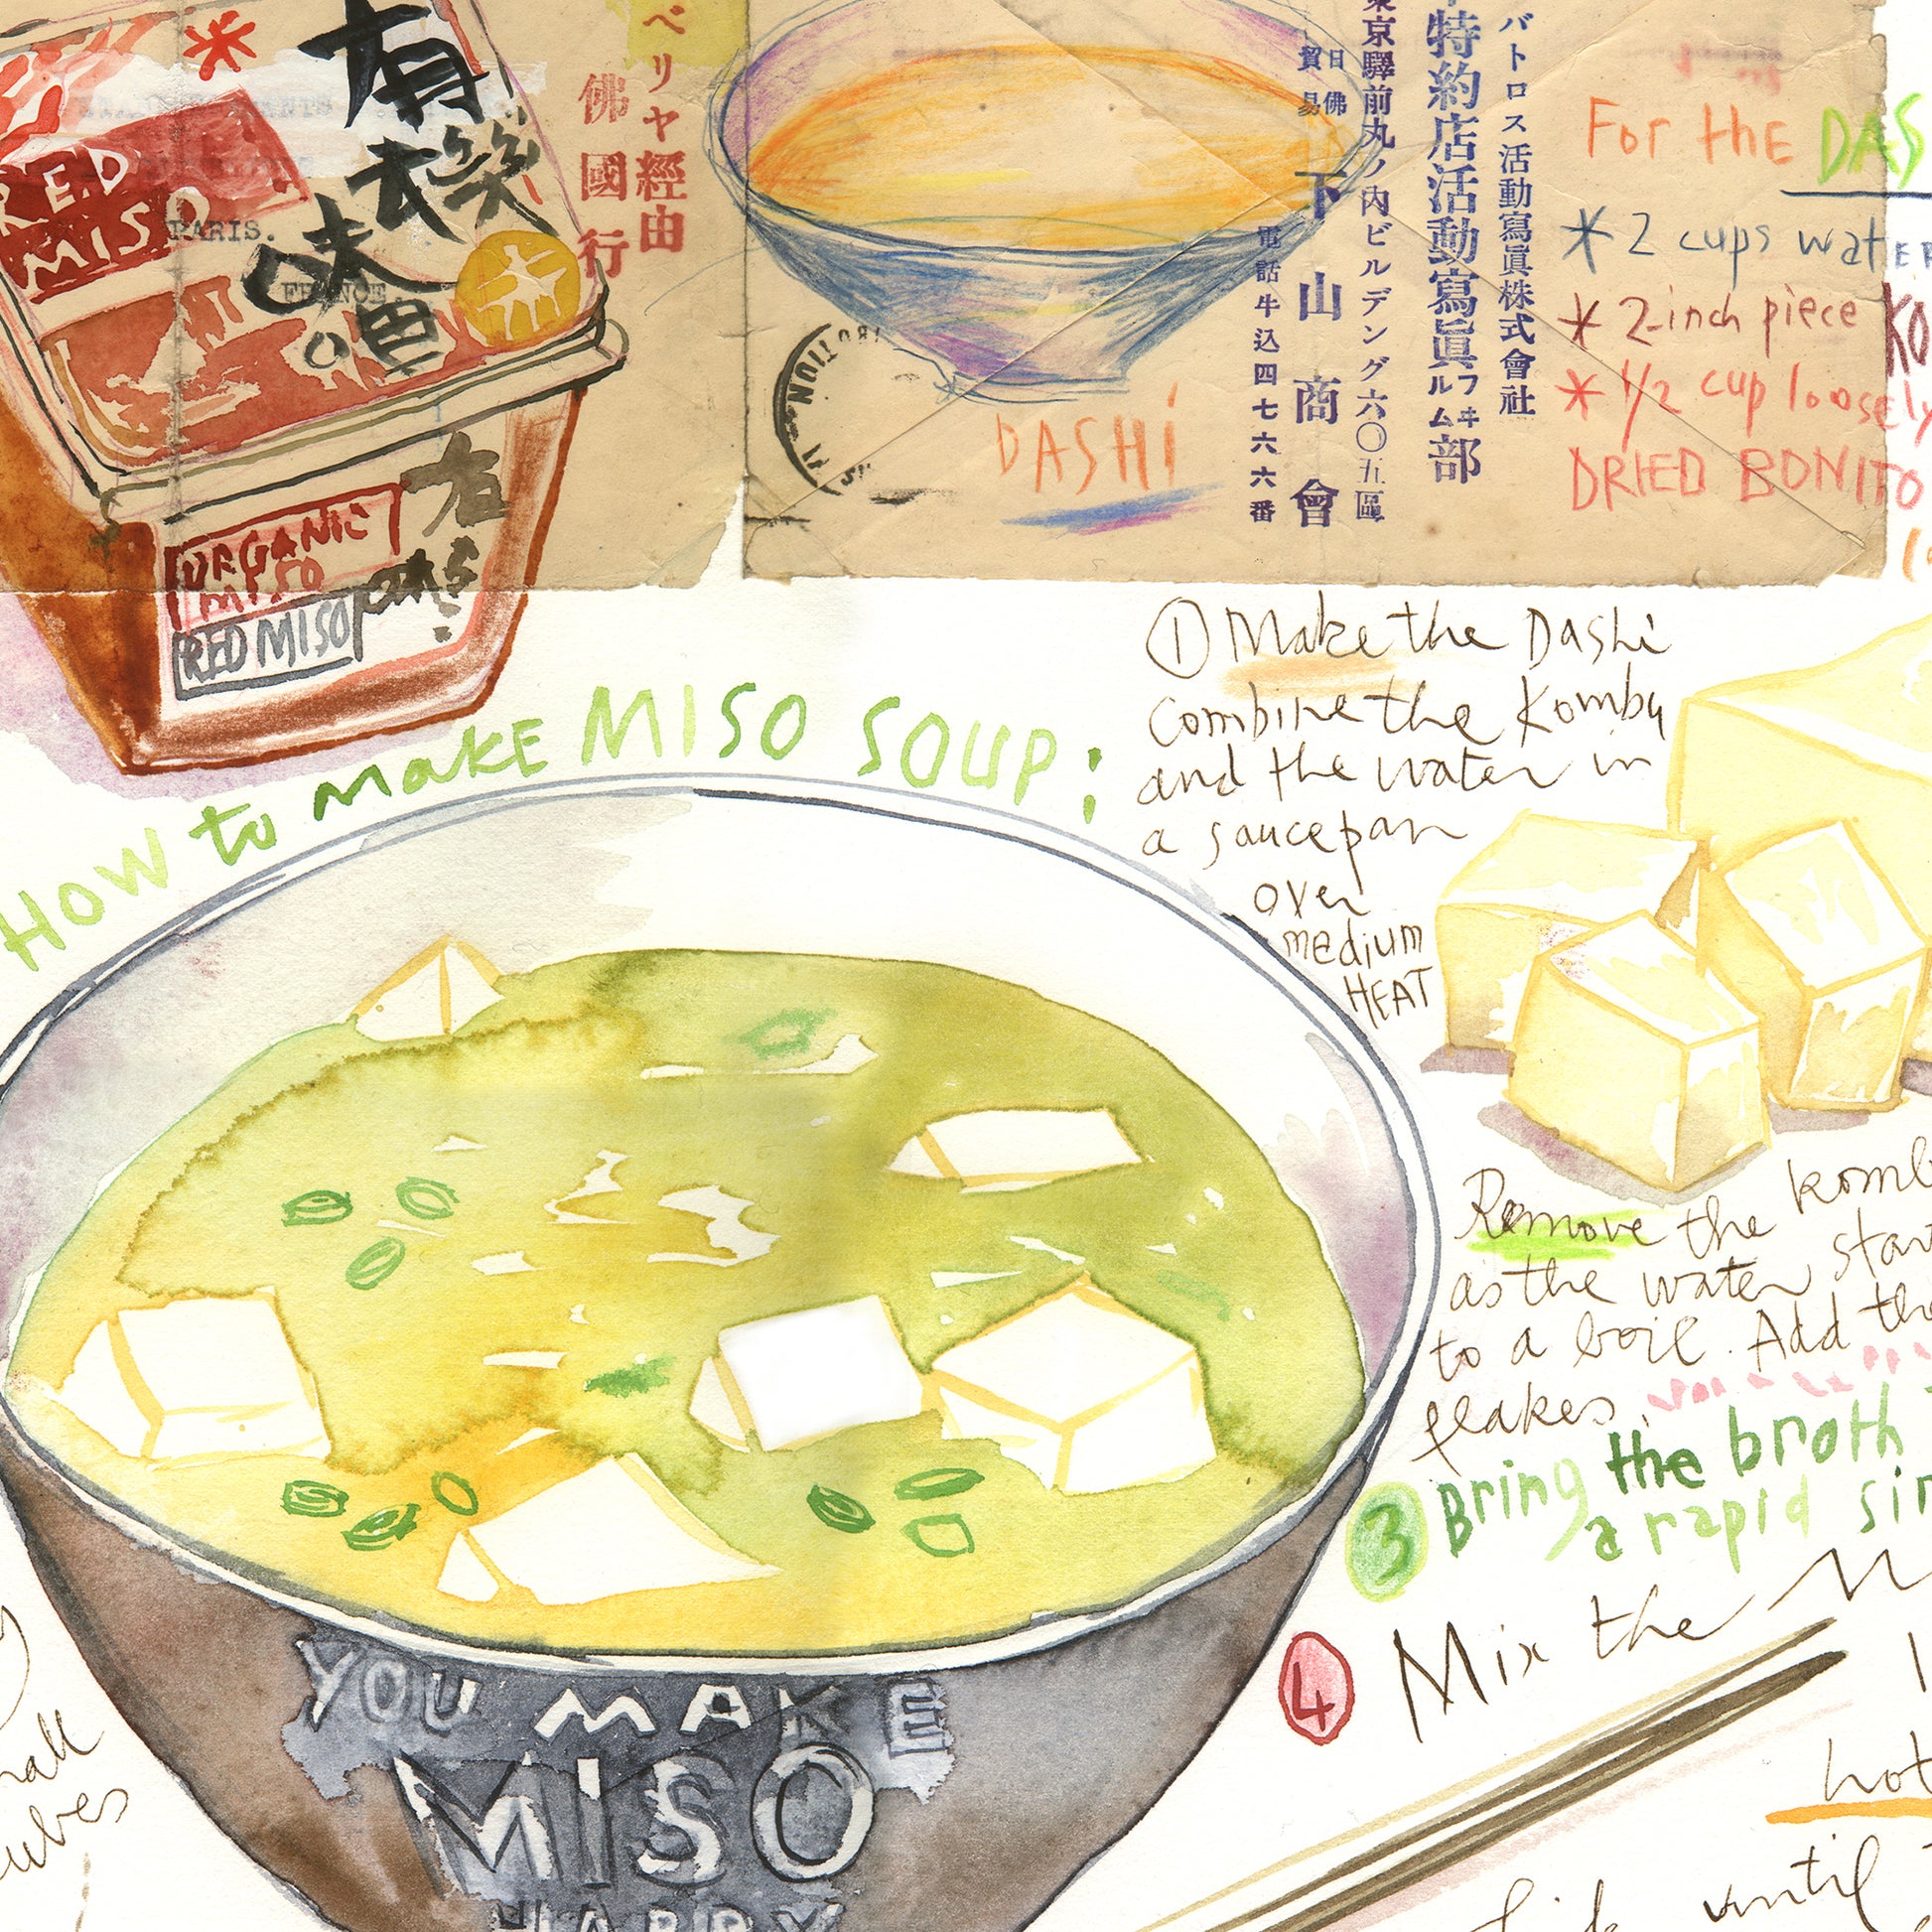 RED
MISO
有機
味噌
PARIS.
FRANCE.
ORGANIC
MISO
RED MISO
ベリヤ經由
佛國行
DASHi
バトロス活動寫眞株式會社
特約店活動寫眞フヰルム部
東京驛前丸ノ内ビルデング六〇五區
日佛
貿易
下山商會
電話牛込四七六六番
For thE DAS
* 2 cups watER
* 2-inch piece KO
* 1/2 cup loosely
DRIED BONITO
HOW to makE MISO SOUP:
① Make the Dashi
Combine the Kombu
and the water in
a saucepan
over
medium
HEAT
Remove the komb
as the water star
to a boil. Add the
flakes.
③ Bring the broth
a rapid sim
④ Mix the M
hot
until
YOU MAKE
MISO
HAPPY
ubes